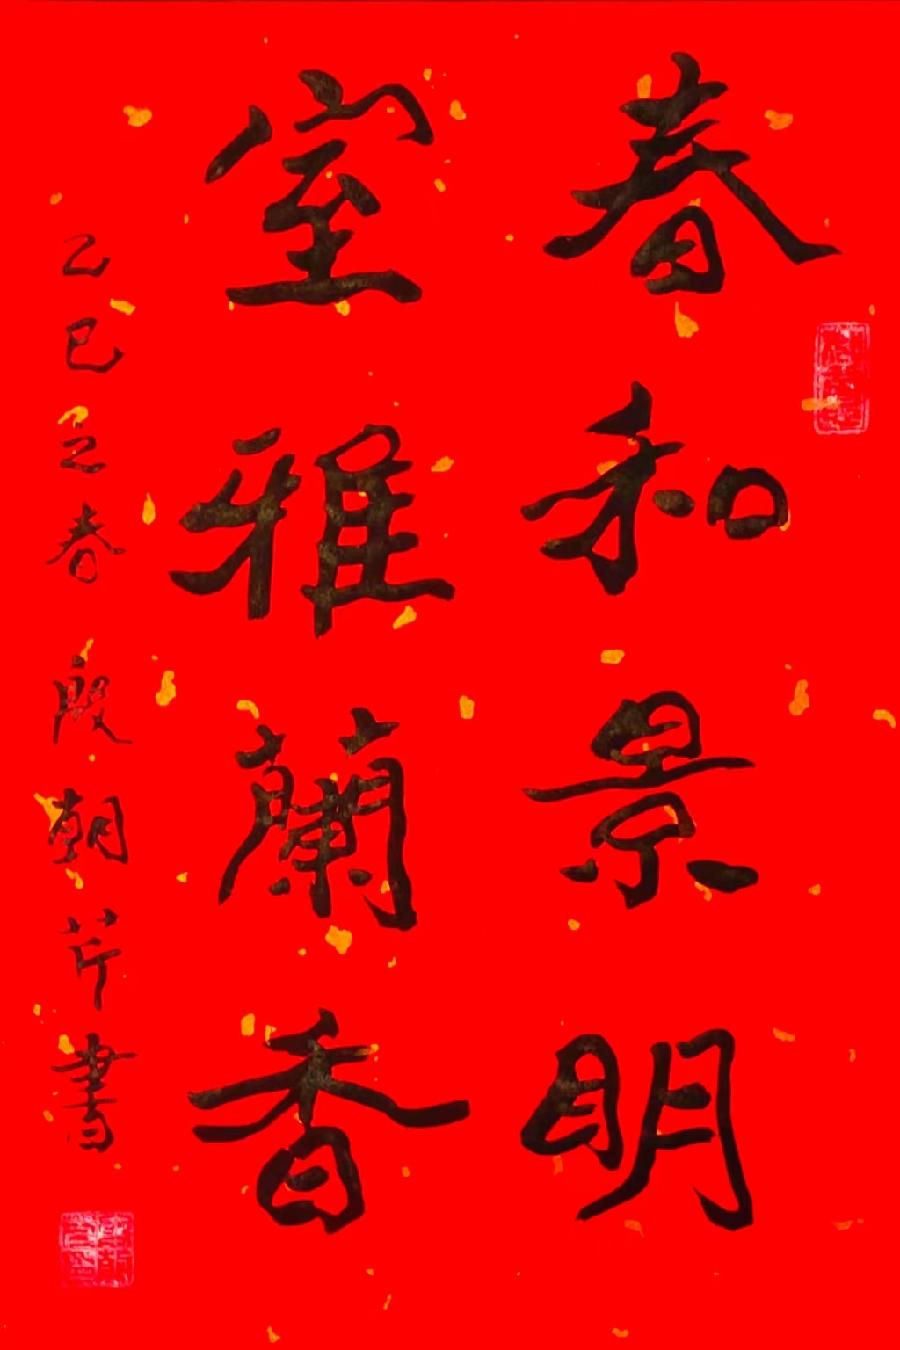 春和景明
室雅蘭香
乙巳之春段朝芹書